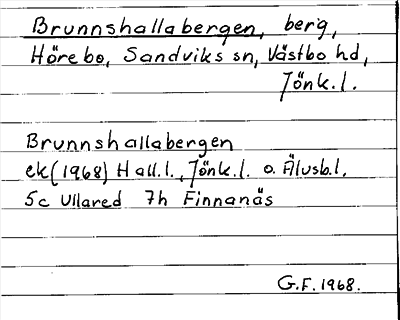 Brunnshallabergen, berg,
Hörebo, Sandviks sn, Västbo hd,
Jönk.l.
Brunnshallabergen
ek (1968) Hall.l., Jönk.l. o. Älvsb.l.
5c Ullared 7h Finnanäs
G.F. 1968.